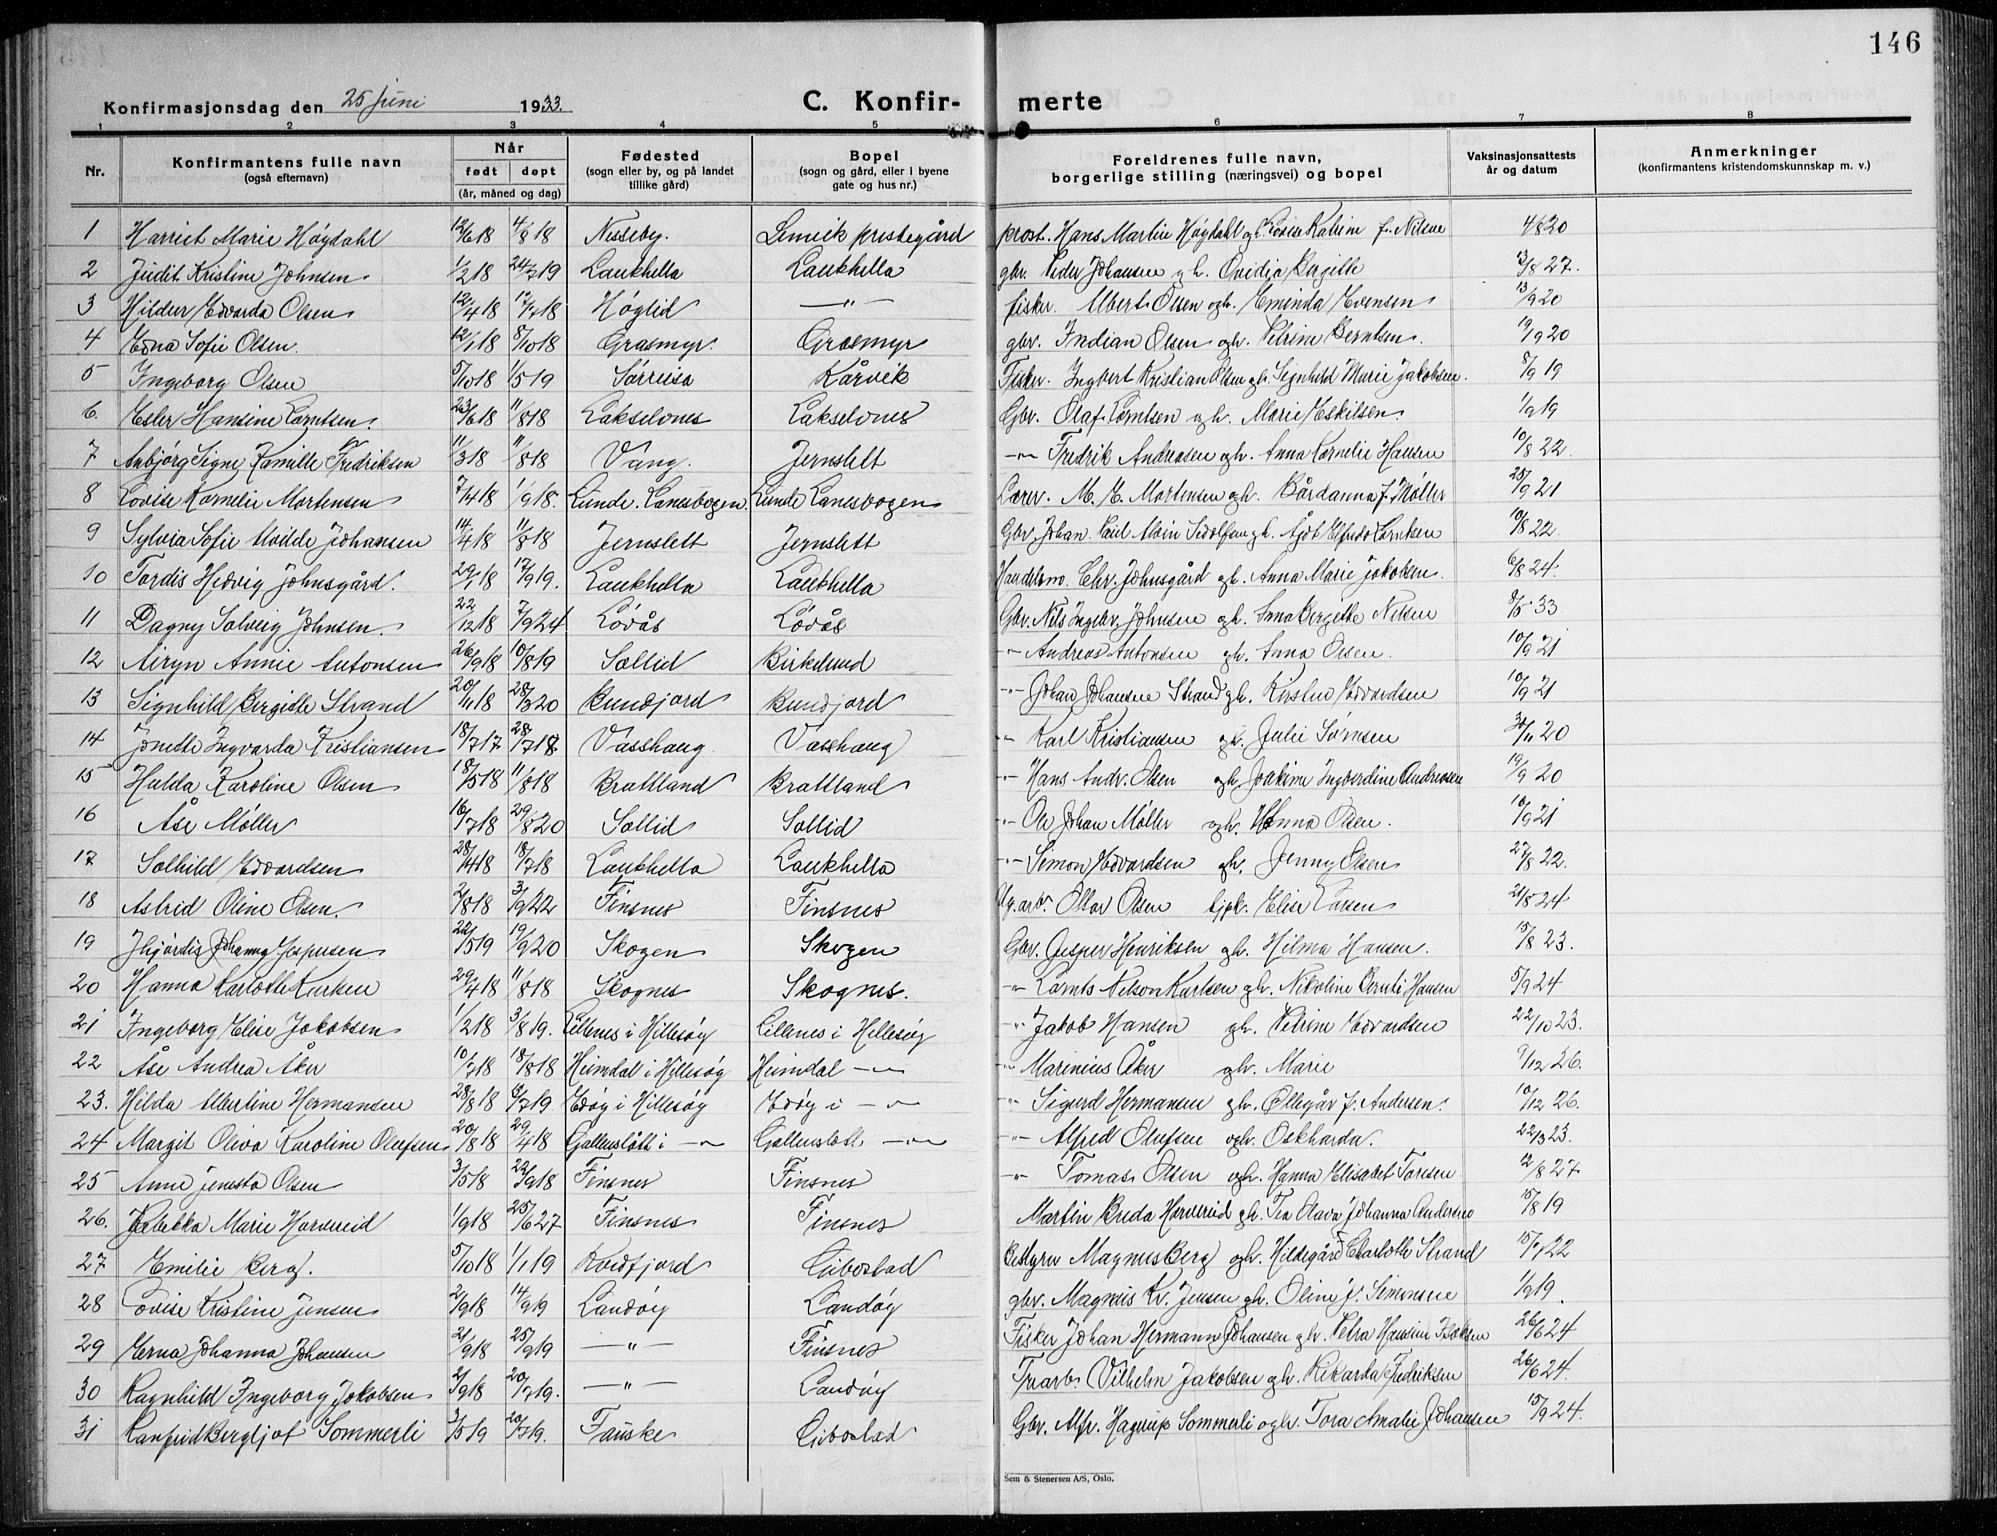 146
Konfirmasjonsdag den 25 juni 1933.
C. Konfir- merte
1 2 3 4 5 6 7 8
Nr. Konfirmantens fulle navn (også efternavn) Når født døpt (år, måned og dag) Fødested (sogn eller by, og på landet tillike gård) Bopel (sogn og gård, eller i byene gate og hus nr.) Foreldrenes fulle navn, borgerlige stilling (næringsvei) og bopel Vaksinasjonsattests år og datum Anmerkninger (konfirmantens kristendomskunnskap m. v.)
1 Harriet Marie Høgdahl 12/6 18 4/8 18 Nesseby. Lenvik prestegård prost. Hans Martin Høgdahl og Lovise Katrine f. Nilsen 4/8 20
2 Judit Kristine Johnsen 1/2 18 24/7 19 Laukhella Laukhella gbr. Peder Johansen og h. Ovidia Bergitte 13/8 27.
3 Hildur Edvarda Olsen 12/4 18 Høglid —"— fisker. Albert Olsen og h. Eminda Evensen 13/9 20
4 Edna Sofie Olsen. 12/1 18 8/10 18 Grasmyr. Grasmyr gbr. Indian Olsen og h. Petrine Berntsen. 19/9 20
5 Ingeborg Olsen 5/10 18 1/5 19 Sørreisa Kårvik Fisker. Ingbert Kristian Olsen og h. Signhild Marie Jakobsen. 8/9 19
6. Ester Hansine Lorntsen. 23/6 18 11/8 18 Lakselvnes Lakselvnes Gbr. Olaf Lorntsen og h. Marie Eskilsen. 1/9 19
7 Anbjørg Signe Kamille Fredriksen 11/3 18 11/8 18 Vang. Jernslett —"— Fredrik Andreasen og h. Anna Kornelie Hansen 10/8 22.
8 Lovise Kornelie Mortensen 7/4 18 1/9 18. Lunde. Lanesbogen. Lunde Lanesbogen Lærer. M. E. Mortensen og h. Bårdanna f. Møller 25/9 21
9 Sylvia Sofie Alvilde Johansen 14/4 18 11/8 18 Jernslett Jernslett Gbr. Johan Paul Sidolfsen og h. 10/8 22.
10 Tordis Hedvig Johnsgård. 29/1 18 17/9 19. Laukhella Laukhella Handelsm. Chr. Johnsgård og h. Anna Marie Jakobsen. 6/8 24.
11 Dagny Solveig Johnsen. 22/12 18 7/9 24 Løvås Løvås Gbr. Nils Ingebr. Johnsen og h. Bergitte Nilsen 8/5 33
12 Airyn Annie Antonsen 26/9 18 10/8 19 Sollid Birkelund —"— Andreas Antonsen og h. Anna Olsen. 10/9 21
13 Signhild Bergitte Strand 20/11 18 28/3 20 Bundjord Bundjord —"— Johan Johansen Strand og h. Kirsten Edvardsen 10/9 21
14 Jonette Ingvarda Kristiansen 18/7 17 28/7 18 Vasshaug Vasshaug —"— Karl Kristiansen og h. Julie Sørnsen 30/11 20
15 Hulda Karoline Olsen 18/5 18 11/8 18 Brattland Brattland —"— Hans Andr. Olsen og h. Joakime Ingberdine Andreasen 19/9 20
16 Åse Møller 16/7 18 29/8 20 Sollid Sollid —"— Ole Johan Møller og h. Hanna Olsen. 10/9 21
17 Solhild Edvardsen 28/4 18 18/7 18 Laukhella Laukhella —"— Simon Edvardsen og h. Jenny Olsen 27/8 22.
18 Astrid Oline Olsen. 2/8 18 3/9 22 Finsnes Finsnes Olsen Elise Larsen 21/8 24
19 Hjørdis Johanna Jespersen 22/5 19 19/9 20 Skogen Skogen Gbr. Jesper Henriksen og h. Hilma Hansen. 15/8 23.
20 Hanna Karlotte Karlsen 29/4 18 11/8 18 Skognes Skognes. —"— Lornts Nilson Karlsen og h. Nikoline Bernti Hansen 5/9 24
21 Ingeborg Elise Jakobsen 1/2 18 3/8 19. Lillenes i Hillesøy Lillenes i Hillesøy —"— Jakob Hansen og h. Petrine Edvardsen 22/10 23.
22 Åse Andrea Åker 10/7 18 18/8 18 Heimdal i Hillesøy Heimdal —"— —"— Marinius Åker og h. Marie 9/12 26.
23. Hilda Albertine Hermansen 28/8 18 13/7 19 Edøy i Hillesøy Edøy i —"— —"— Sigurd Hermansen og h. Øllegår f. Andersen. 10/12 26.
24 Margit Oliva Karoline Olufsen 20/8 18 29/4 18 Gallenslått i —"— Gallenslått —"— —"— Alfred Olufsen og h. Oskharda. 22/3 23.
25 Anne Jenesta Olsen 3/5 18 22/9 18 Finsnes Finsnes —"— Tomas Olsen og h. Hanna Elisabet Toresen 12/8 27
26. Rebekka Marie Horvereid 1/9 18 25/6 27 Finsnes Finsnes Martin Buda Horvereid og h. Tea Olava Johanna Andersen 15/8 19
27 Emilie Berg. 5/10 18 1/1 19 Kvidfjord Gibostad Bestyrer Magnus Berg og h. Hildegård Charlotte Strand 22
28 Lovise Kristine Jensen 2/9 18 14/9 19 Landøy Landøy gbr. Magnus Kr. Jensen og h. Oline f. Simonsen 1/9 19.
29 Erna Johanna Johansen 21/9 18 25/9 19 —"— Finsnes Fisker Johan Hermann Johansen og h. Petra Hansine Isaksen 26/6 24
30 Ragnhild Ingeborg Jakobsen 2/9 18 20/7 19. —"— Landøy Vilhelm Jakobsen og h. Rikarda Fredriksen 26/6 24.
31 Ranfrid Bergljot Sommerli 3/5 19 20/7 19. Fauske Gibostad Gbr. Alfr. Hagerup Sommerli og h. Tora Amalie Johansen 15/9 24.
Sem & Stenersen A/S, Oslo.